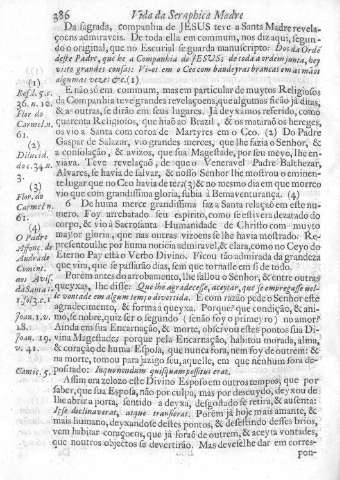 386 Vida da Seraphica Madre
Da sagrada, companhia de JESUS teve a Santa Madre revela-
çoens admiraveis. De toda ella em commum, nos diz aqui, segun-
do o original, que no Escurial se guarda manuscripto: Dos da Ordé
deste Padre, que he a Companhia de JESUS: de toda a ordem junta, hey
visto grandes cousas: Vi-os em o Ceo com bandeyras brancas em as mãos
algumas vezes &c. (1)
E não só em commum, mas em particular de muytos Religiosos
da Companhia teve grandes revelaçoens, que algumas ficão já ditas,
& as outras, se dirão em seus lugares. Já deyxamos referido, como
quarenta Religiosos, que hião ao Brazil, & os matarão os hereges,
os vio a Santa com coroa de Martyres em o Ceo. (2) Do Padre
Gaspar de Salazar, vio grandes merces, que lhe fazia o Senhor, &
a consolação, & avisos, que sua Magestade, por seu meyo, lhe en-
viava. Teve revelação, de que o Veneravel Padre Balthezar,
Alvares, se havia de salvar, & nosso Senhor lhe mostrou o eminen-
te lugar que no Ceo havia de ter: (3) & no mesmo dia em que morreo
vio que com grandissima gloria, subia à Bemaventurança. (4)
6 De huma merce grandissima faz a Santa relação em este nu-
mero. Foy arrebatado seu espirito, como se estivera dezatado do
corpo, & vio a Sacrosanta Humanidade de Christo com muyto
mayor gloria, que nas outras vizoens se lhe havia mostrado. Re-
presentoulhe por huma noticia admiravel, & clara, como no Ceyo do
Eterno Pay està o Verbo Divino. Ficou tão admirada da grandeza
que vira, que se passarão dias, sem que tornasse em si de todo.
Porém antes do arrobamento, lhe fallou o Senhor, & entre outras
queyxas, lhe disse: Que lhe agradecesse, aceytar, que se empregasse nel-
le vontade em algum tempo divertida. E com razão pede o Senhor este
agradecimento, & forma a queyxa. Porque? que condição, & ani-
mo, se nobre, quiz ser o segundo (senão foy o primeyro) no amor?
Ainda em sua Encarnação, & morte, observou estes pontos sua Di-
vina Magestade: porque pela Encarnação, habitou morada, alma,
& coração de huma Esposa, que nunca fora, nem foy de outrem: &
na morte, tomou para jazigo seu, aquelle, em que nenhum fora de-
positado: In quo nondum quisquam positus erat.
Assim era zelozo este Divino Esposo em outros tempos, que por
saber, que sua Esposa, não por culpa, mas por descuydo, deyxou de
lhe abrir a porta, sentido a deyxa, desgostado se retira, & ausenta:
Ipse declinaverat, atque transierat. Porem já hoje mais amante, &
mais humano, deyxando se destes pontos, & desestindo desses brios,
vem habitar coraçoens, que já forão de outrem, & aceyta vontades,
que noutros objectos se devertirão. Mas deveselhe dar em corres-
pon-
(1)
36. n. 10.
Flor do
Carmel. n.
61.
(2)
Dilucid.
3.
(3)
Flor. do
Carmel. n.
61.
(4)
O Padre
Affonc. de
Andrade
Joan. 1. v.
18.
Joan. 19.
v. 41.
Cantic. 5.